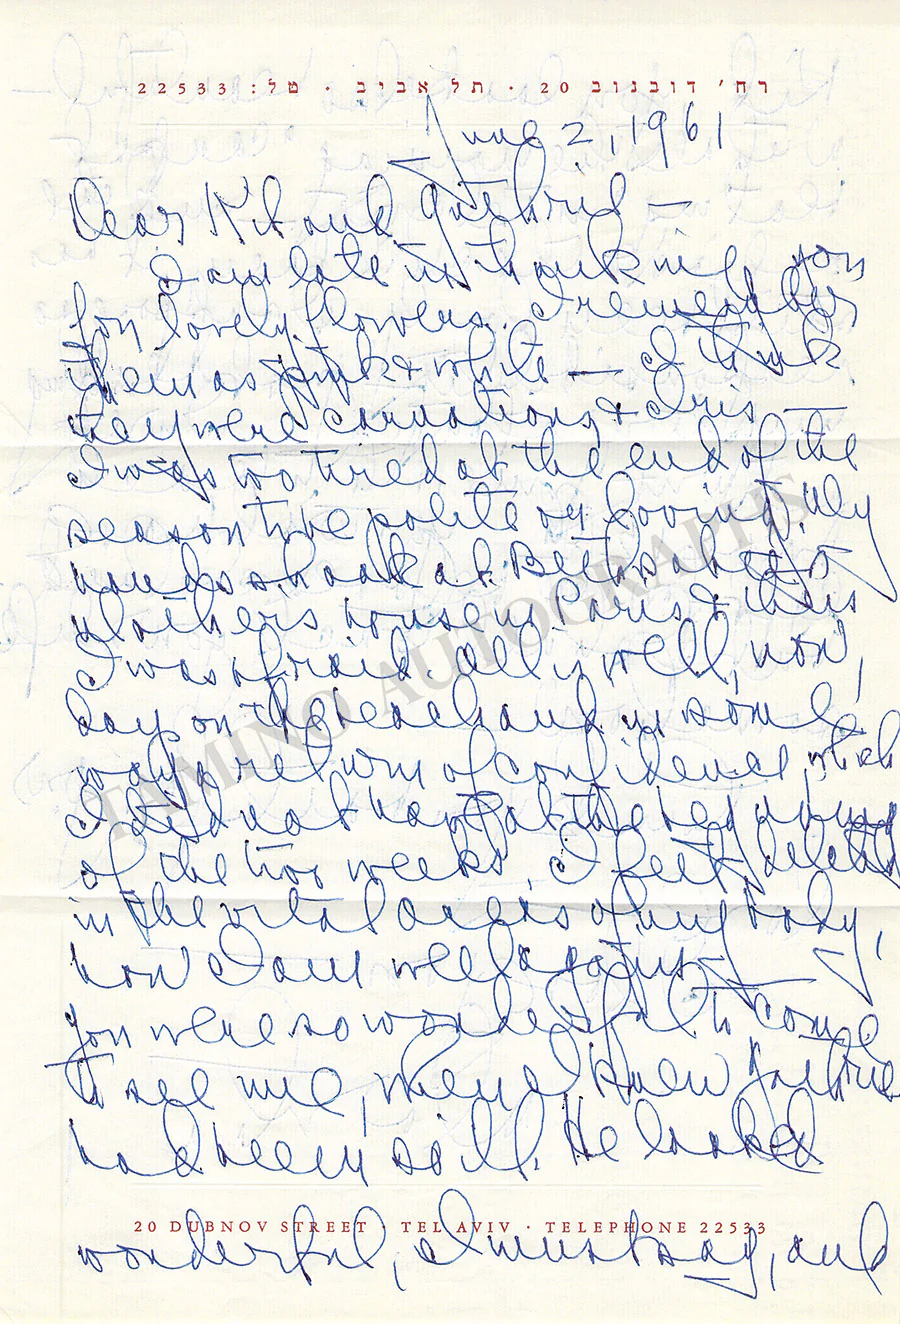 רח' דובנוב 20 · תל אביב · טל: 22533
June 2, 1961
Dear Kit and Guthrie —
I am late in thanking you
for lovely flowers. I remember
them as pink & white — I think
they were carnations & Iris —
I was too tired at the end of the
season to be polite or loving. My
hands shook at
Mothers house in Paris & this
I was afraid. All is well, now,
days on the beach and in some
ways a return of confidence, which
I did not have at the beginning
of the two weeks, I feel,
in the vital areas of my body,
now I am well again —
You were so wonderful to come
to see me, when I knew Guthrie
had been so ill. He looked
20 DUBNOV STREET · TEL AVIV · TELEPHONE 22533
wonderful, I must say, and
TAMINO AUTOGRAPHS